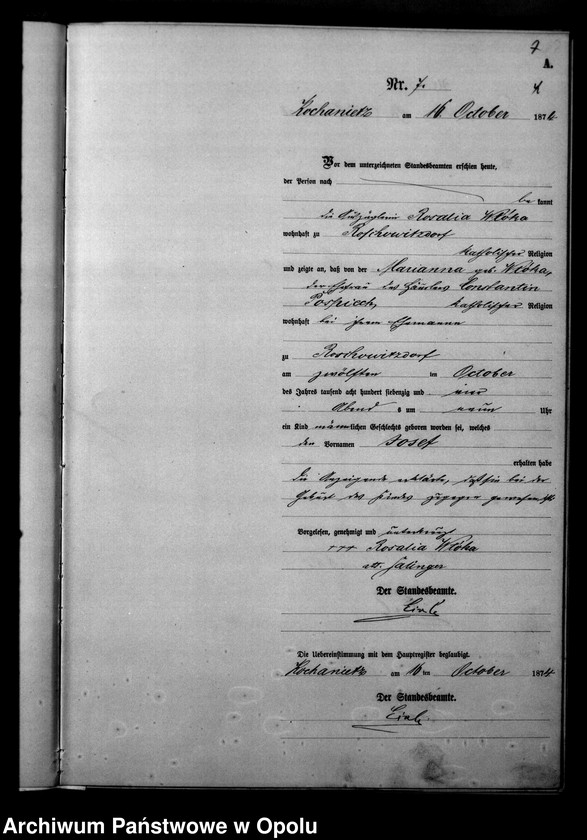 7
A.
Nr. 7.
Kochanietz am 16. October 1874
Vor dem unterzeichneten Standesbeamten erschien heute,
der Person nach
be kannt
die Auszüglerin Rosalia Wloka
wohnhaft zu Roschowitzdorf
katholischer Religion
und zeigte an, daß von der Marianna geb. Wloka,
der Ehefrau des Häuslers Constantin
Pospiech, katholischer Religion
wohnhaft bei ihrem Ehemanne
zu Roschowitzdorf
am zwölften ten October
des Jahres tausend acht hundert siebenzig und vier
Abend s um neun Uhr
ein Kind männlichen Geschlechts geboren worden sei, welches
den Vornamen Josef
erhalten habe
Die Anzeigende erklärte, daß sie bei der
Geburt des Kindes zugegen gewesen ist.
Vorgelesen, genehmigt und
+++ Rosalia Wloka
Der Standesbeamte.
Die Uebereinstimmung mit dem Hauptregister beglaubigt.
Kochanietz am 16 ten October 1874
Der Standesbeamte.
Archiwum Państwowe w Opolu